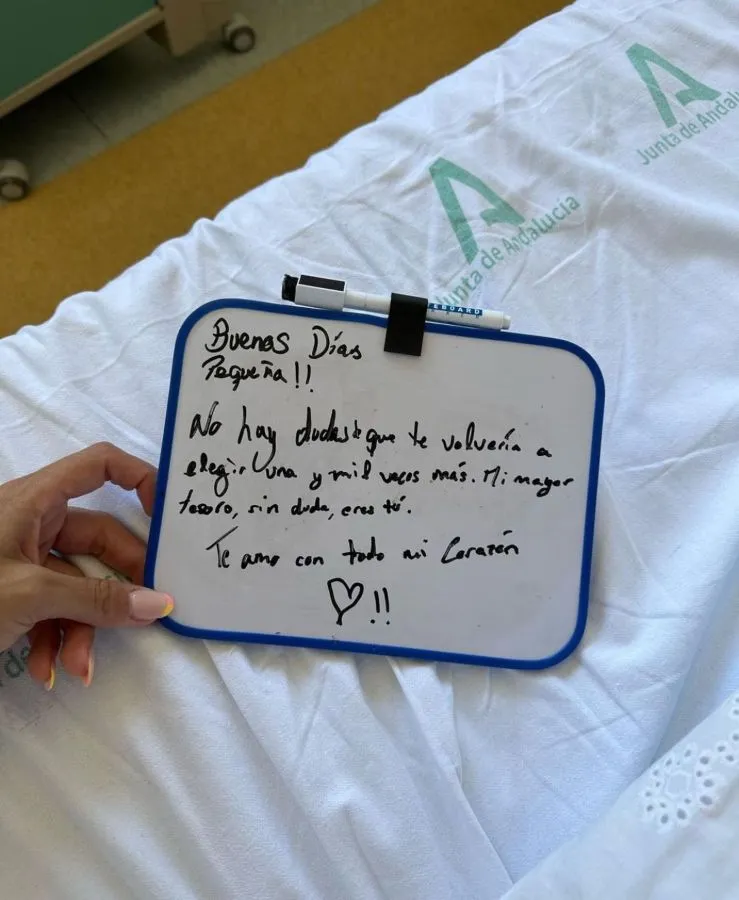 Junta de Andalucía
Junta de Andalucía
EBOARD
Buenos Días
Pequeña!!
No hay dudas de que te volvería a
elegir una y mil veces más. Mi mayor
tesoro, sin duda, eres tú.
Te amo con todo mi Corazón
!!
de